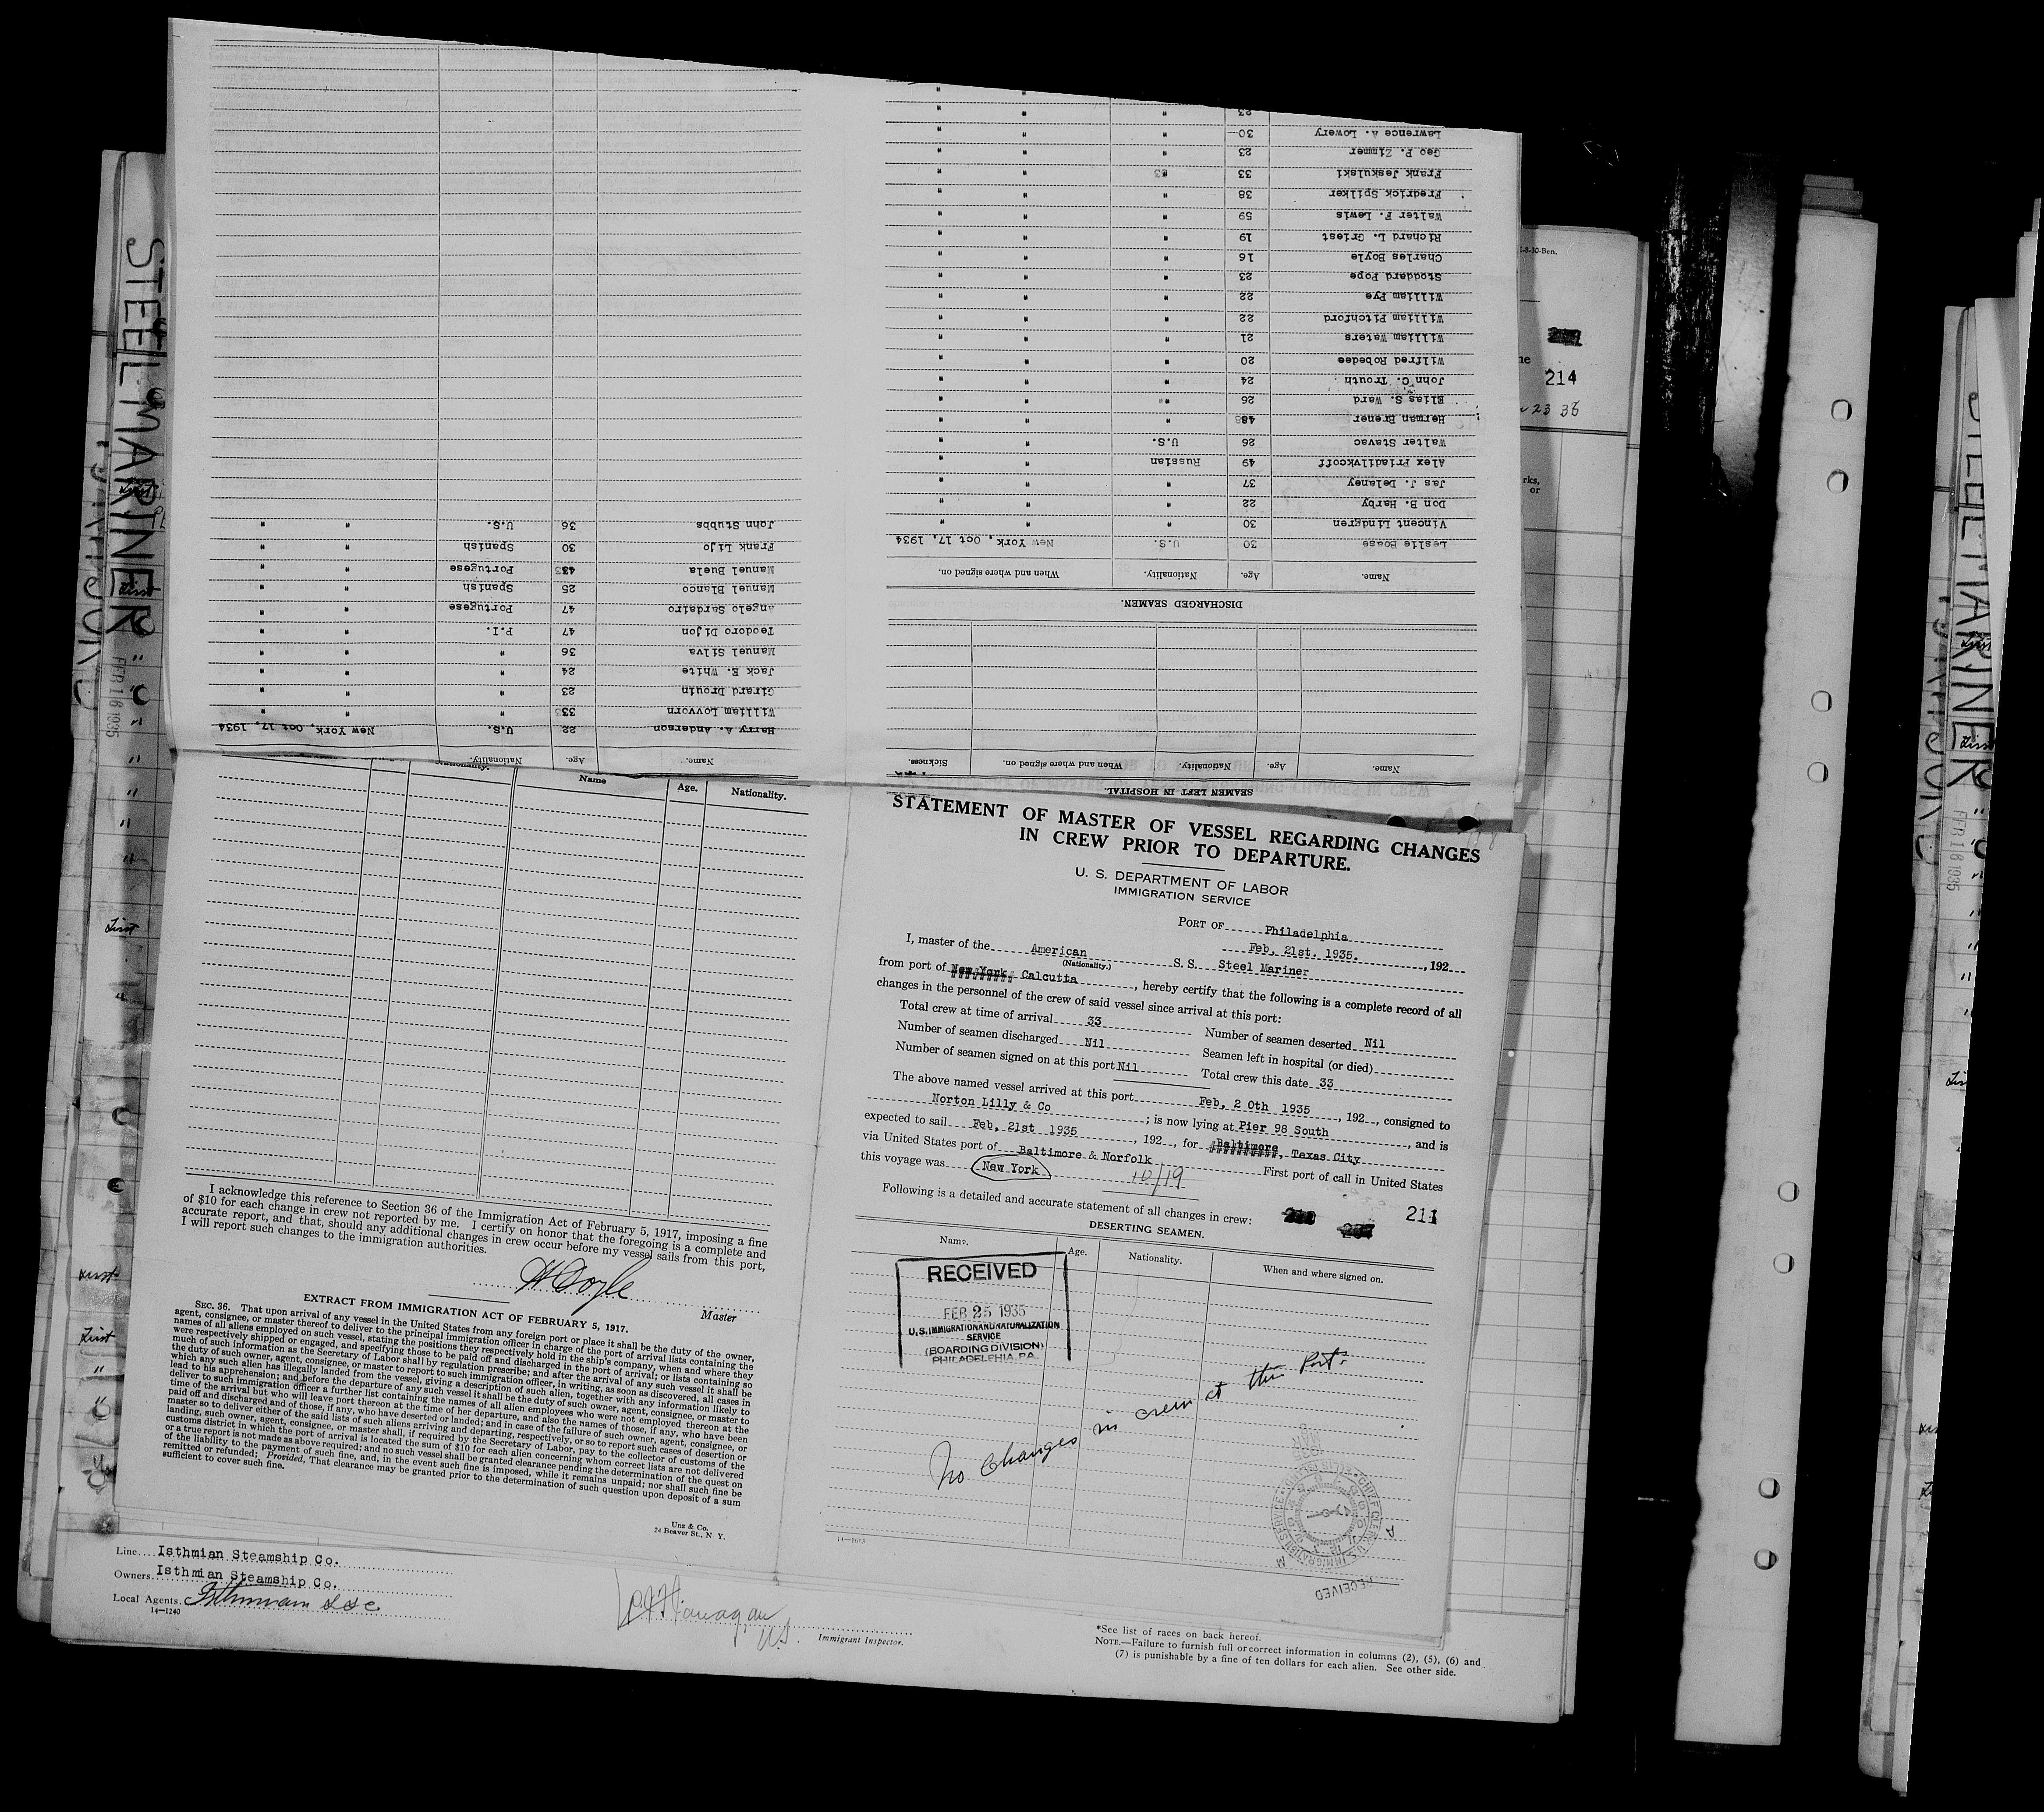 STEEL MARINER
FEB 16 1935
SEAMEN LEFT IN HOSPITAL.
Name. Age. Nationality. When and where signed on. Sickness.
DISCHARGED SEAMEN.
Name. Age. Nationality. When and where signed on.
Leslie Boase 30 U.S. New York, Oct 17, 1934
Vincent Lindgren 30 " " "
Don B. Harby 22 " " "
Jas J. Delaney 37 " " "
Alex Priadilvkcoff 49 Russian " "
Walter Stavac 26 U.S. " "
Herman Brener 48 " " "
Elias S. Ward 26 " " "
John C. Trouth 24 " " "
Wilfred Robedee 20 " " "
William Waters 21 " " "
William Pitchford 22 " " "
William Pye 22 " " "
Stoddard Pope 23 " " "
Charles Boyle 16 " " "
Richard L. Griest 19 " " "
Walter F. Lewis 59 " " "
Fredrick Spilker 38 " " "
Frank Jeskulski 33 " " "
Geo P. Zimmer 23 " " "
Lawrence A. Lowery 30 " " "
23 " " "
Name. Age. Nationality.
Harry A. Anderson 22 U.S. New York, Oct 17, 1934
William Lovvorn 33 " " "
Girard Drouin 23 " " "
Jack E. White 24 " " "
Manuel Silva 36 " " "
Teodoro Dijon 47 P.I. " "
Angelo Sardairo 47 Portugese " "
Manuel Blanco 25 Spanish " "
Manuel Buela 43 Portugese " "
Frank Lijo 30 Spanish " "
John Stubbs 36 U.S. " "
Name Age. Nationality.
I acknowledge this reference to Section 36 of the Immigration Act of February 5, 1917, imposing a fine
of $10 for each change in crew not reported by me. I certify on honor that the foregoing is a complete and
accurate report, and that, should any additional changes in crew occur before my vessel sails from this port,
I will report such changes to the immigration authorities.
H Doyle
Master
EXTRACT FROM IMMIGRATION ACT OF FEBRUARY 5, 1917.
SEC. 36. That upon arrival of any vessel in the United States from any foreign port or place it shall be the duty of the owner,
agent, consignee, or master thereof to deliver to the principal immigration officer in charge of the port of arrival lists containing the
names of all aliens employed on such vessel, stating the positions they respectively hold in the ship's company, when and where they
were respectively shipped or engaged, and specifying those to be paid off and discharged in the port of arrival; or lists containing so
much of such information as the Secretary of Labor shall by regulation prescribe; and after the arrival of any such vessel it shall be
the duty of such owner, agent, consignee, or master to report to such immigration officer, in writing, as soon as discovered, all cases in
which any such alien has illegally landed from the vessel, giving a description of such alien, together with any information likely to
lead to his apprehension; and before the departure of any such vessel it shall be the duty of such owner, agent, consignee, or master to
deliver to such immigration officer a further list containing the names of all alien employees who were not employed thereon at the
time of the arrival but who will leave port thereon at the time of her departure, and also the names of those, if any, who have been
paid off and discharged and of those, if any, who have deserted or landed; and in case of the failure of such owner, agent, consignee, or
master so to deliver either of the said lists of such aliens arriving and departing, respectively, or so to report such cases of desertion or
landing, such owner, agent, consignee, or master shall, if required by the Secretary of Labor, pay to the collector of customs of the
customs district in which the port of arrival is located the sum of $10 for each alien concerning whom correct lists are not delivered
or a true report is not made as above required; and no such vessel shall be granted clearance pending the determination of the quest on
of the liability to the payment of such fine, and, in the event such fine is imposed, while it remains unpaid; nor shall such fine be
remitted or refunded; Provided, That clearance may be granted prior to the determination of such question upon deposit of a sum
sufficient to cover such fine.
Unz & Co.
24 Beaver St., N. Y.
STATEMENT OF MASTER OF VESSEL REGARDING CHANGES
IN CREW PRIOR TO DEPARTURE.
U. S. DEPARTMENT OF LABOR
IMMIGRATION SERVICE
PORT OF Philadelphia
Feb, 21st. 1935. , 192
I, master of the American S. S. Steel Mariner
(Nationality.)
from port of New York Calcutta , hereby certify that the following is a complete record of all
changes in the personnel of the crew of said vessel since arrival at this port:
Total crew at time of arrival 33
Number of seamen deserted Nil
Number of seamen discharged Nil
Seamen left in hospital (or died)
Number of seamen signed on at this port Nil
Total crew this date 33
The above named vessel arrived at this port Feb, 2 0th 1935 , 192 , consigned to
Norton Lilly & Co ; is now lying at Pier 98 South , and is
expected to sail Feb, 21st 1935 , 192 , for Baltimore, Texas City
via United States port of Baltimore & Norfolk First port of call in United States
this voyage was New York 10/19
Following is a detailed and accurate statement of all changes in crew:
211
DESERTING SEAMEN.
Name. Age. Nationality. When and where signed on.
RECEIVED
FEB 25 1935
U.S. IMMIGRATION AND NATURALIZATION
SERVICE
(BOARDING DIVISION)
PHILADELPHIA, PA.
No Changes in crew at this Port.
RECEIVED
14—1240
Line Isthmian Steamship Co.
Owners Isthmian Steamship Co.
Local Agents. Isthmian SSC
Immigrant Inspector.
*See list of races on back hereof.
NOTE.—Failure to furnish full or correct information in columns (2), (5), (6) and
(7) is punishable by a fine of ten dollars for each alien. See other side.
214
STEEL MARINER
FEB 16 1935